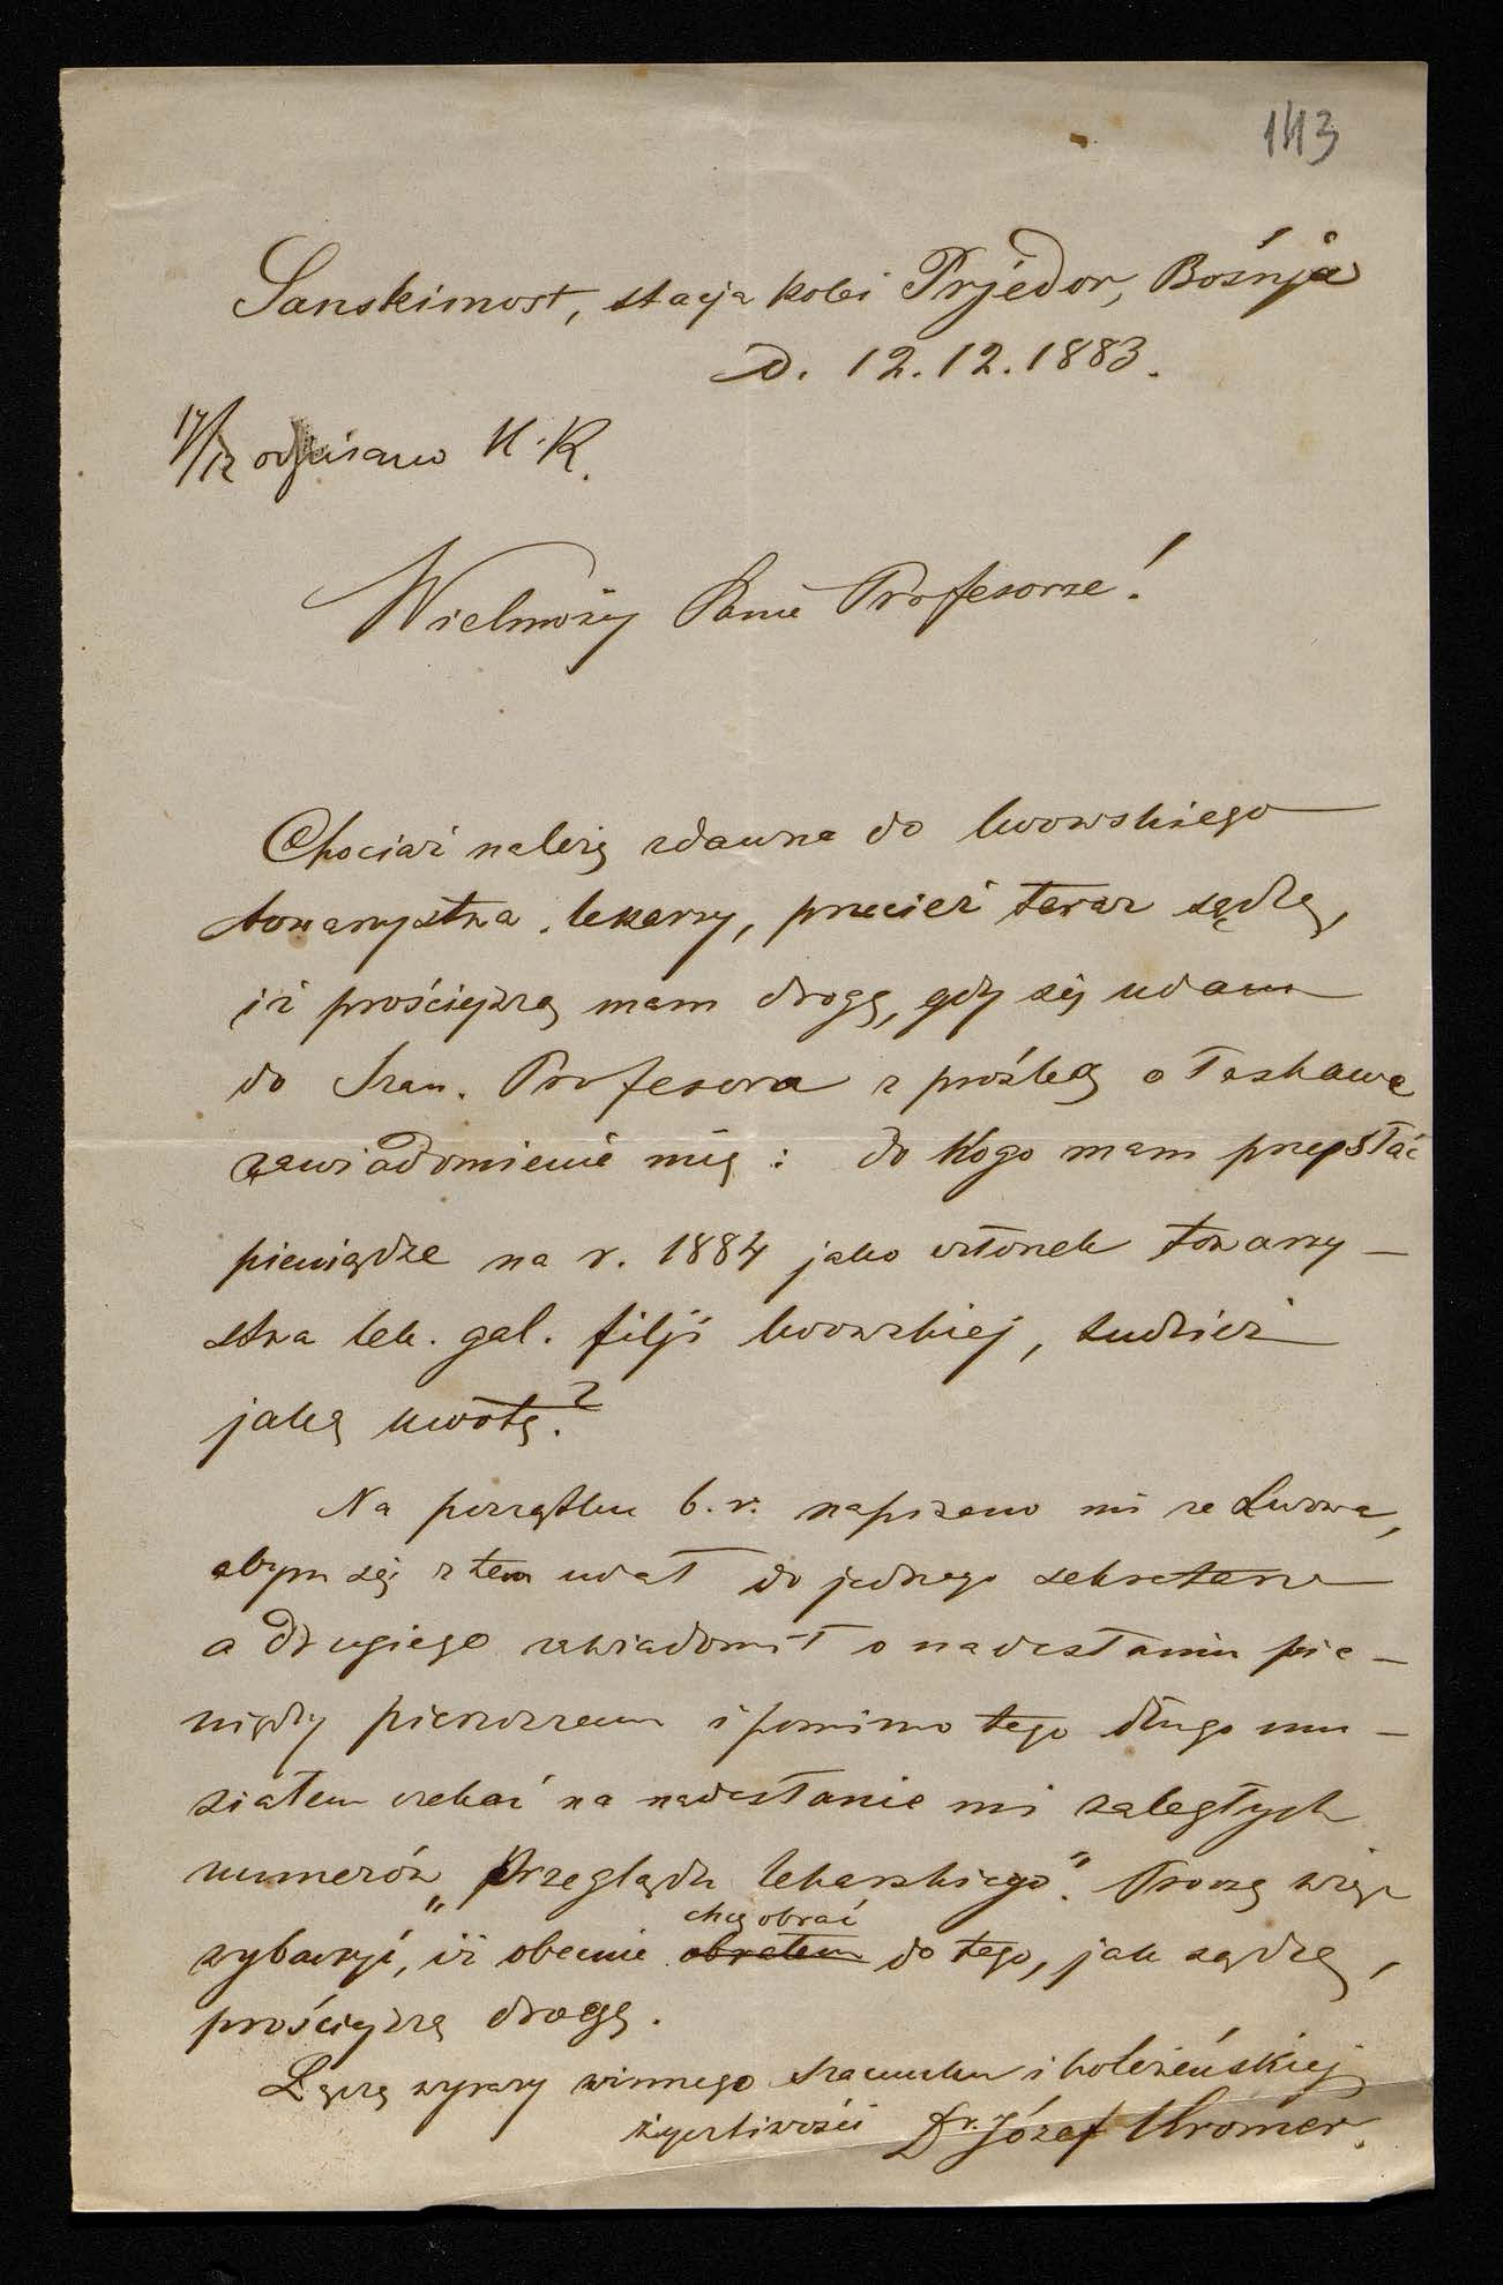 143
Sanskimost, stacja kolei Prjedor, Bośnja
D. 12.12.1883.
17/12 odpisano K.
Wielmożny Panie Profesorze!
Chociaż należę zdawna do lwowskiego
towarzystwa lekarzy, przecież teraz sądzę,
iż prościejszą mam drogę, gdy się udam
do Szan. Profesora z prośbą o łaskawe
zawiadomienie mię : do kogo mam przesłać
pieniądze na r. 1884 jako członek towarzy-
stwa lek. gal. filji lwowskiej, tudzież
jaką kwotę?
Na początku b. r. napisano mi ze Lwowa,
abym się z tem udał do jednego sekretarza
a drugiego zawiadomił o nadesłaniu pie-
niędzy pierwszemu i pomimo tego długo mu-
siałem czekać na nadesłanie mi zaległych
numerów „Przeglądu lekarskiego". Proszę więc
wybaczyć, iż obecnie chcę obrać do tego, jak sądzę,
prościejszą drogę.
Łączę wyrazy winnego szacunku i koleżeńskiej
życzliwości Dr. Józef Kromer.